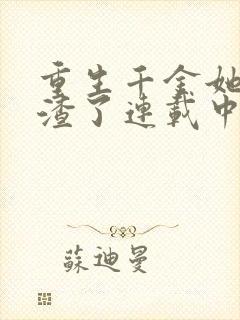 重生千金她
渣了連載中
蘇迪曼